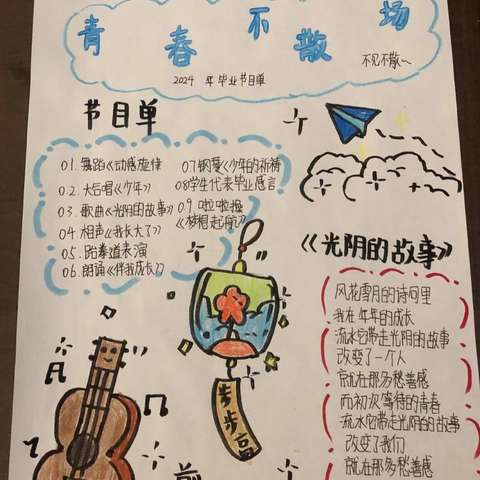 青春不散场
不见不散~
2024 年毕业节目单
节目单
01. 舞蹈《动感旋律
02. 大合唱《少年》
03. 歌曲《光阴的故事》
04 相声《我长大了》
05. 跆拳道表演
06 朗诵《伴我成长》
07 钢琴《少年的祈祷
08 学生代表毕业感言
09 啦啦操
《梦想起航》
步步高
前
《光阴的故事》
风花雪月的诗句里
我在年年的成长
流水它带走光阴的故事
改变了一个人
就在那多愁善感
而初次等待的青春
流水它带走光阴的故事
改变了我们
就在那多愁善感